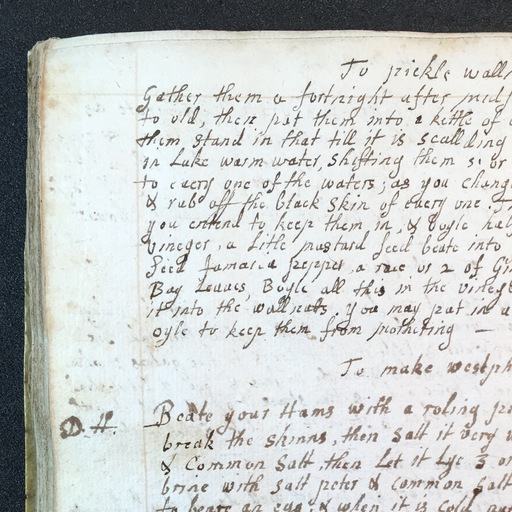 To pickle walln
Gather them a fortnight after mids
to old, then put them into a kettle of
them stand in that till it is scalding
in Luke warm water, shifting them 3 or
to every one of the waters; as you chang
& rub off the black skin of every one,
you entend to keep them in, & boyle half
vineger, a little mustard seed beate into
seed Jamaica pepper, a race or 2 of Gin
Bay Leaves, Boyle all this in the vineg
it into the wallnuts, you may put in a
oyle to keep them from mothering —
To make westph
D. H. Beate your Hams with a roling pi
break the skinns, then salt it very w
& Common salt, then Let it Lye 3 or
brine with salt peter & common salt
to beare an egg; & when it is cold